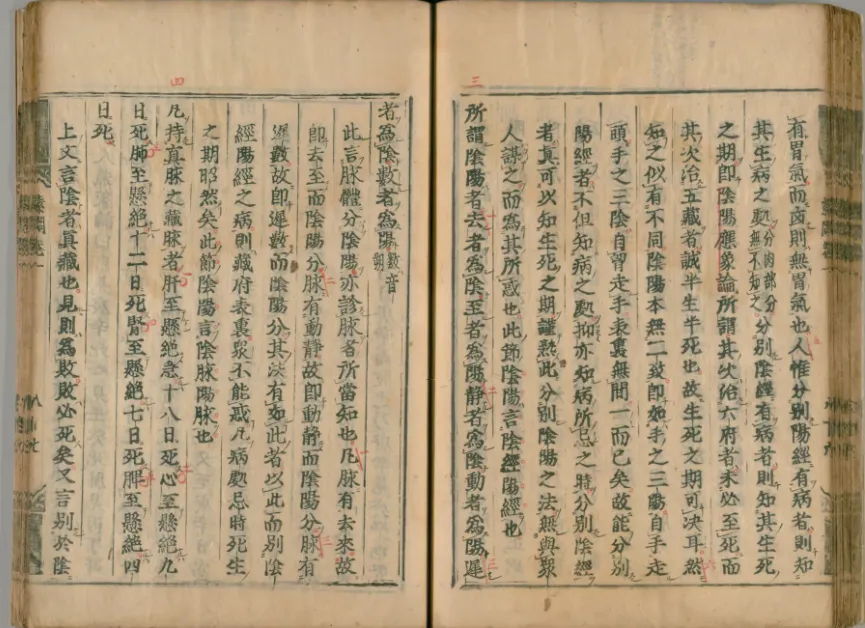 三
有胃氣而卤則無胃氣也人惟分別陽經有病者則知
其生病之處分肉部分無不知之分別陰經有病者則知其生死
之期即陰陽應象論所謂其次治六府者未必至死而
其次治五藏者誠半生半死也故生死之期可決耳然
知之似有不同陰陽本無二致即如手之三陽自手走
頭手之三陰自胷走手表裏無間一而已矣故能分別
陽經者不但知病之處抑亦知病所忌之時分別陰經
者真可以知生死之期謹熟此分別陰陽之法無與眾
人謀之而為其所惑也此節陰陽言陰經陽經也
所謂陰陽者去者為陰至者為陽靜者為陰動者為陽遲
四
者為陰數者為陽數音朔
此言脉體分陰陽亦診脉者所當知也凡脉有去來故
即去至而陰陽分脉有動靜故即動靜而陰陽分脉有
遲數故即遲數而陰陽分其決有如此者以此而別陰
經陽經之病則藏府表裏眾不能惑凡病處忌時死生
之期昭然矣此節陰陽言陰脉陽脉也
凡持真脉之藏脉者肝至懸絕急十八日死心至懸絕九
日死肺至懸絕十二日死腎至懸絕七日死脾至懸絕四
日死
上文言陰者真藏也見則為敗敗必死矣又言別於陰